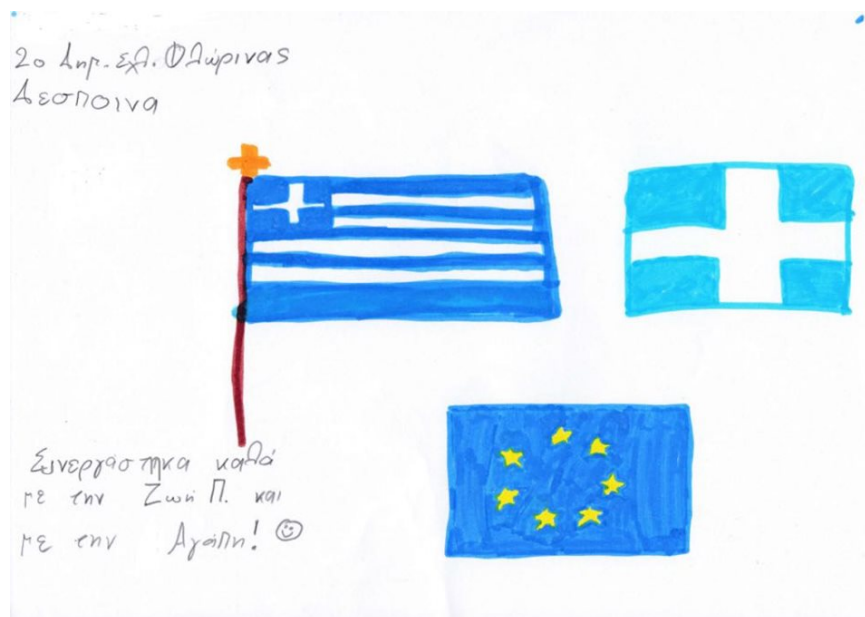 2ο Δημ. Σχλ. Φλώρινας
Δεσποινα
Συνεργάστηκα καλά
με την Ζωή Π. και
με την Αγάπη! ☺